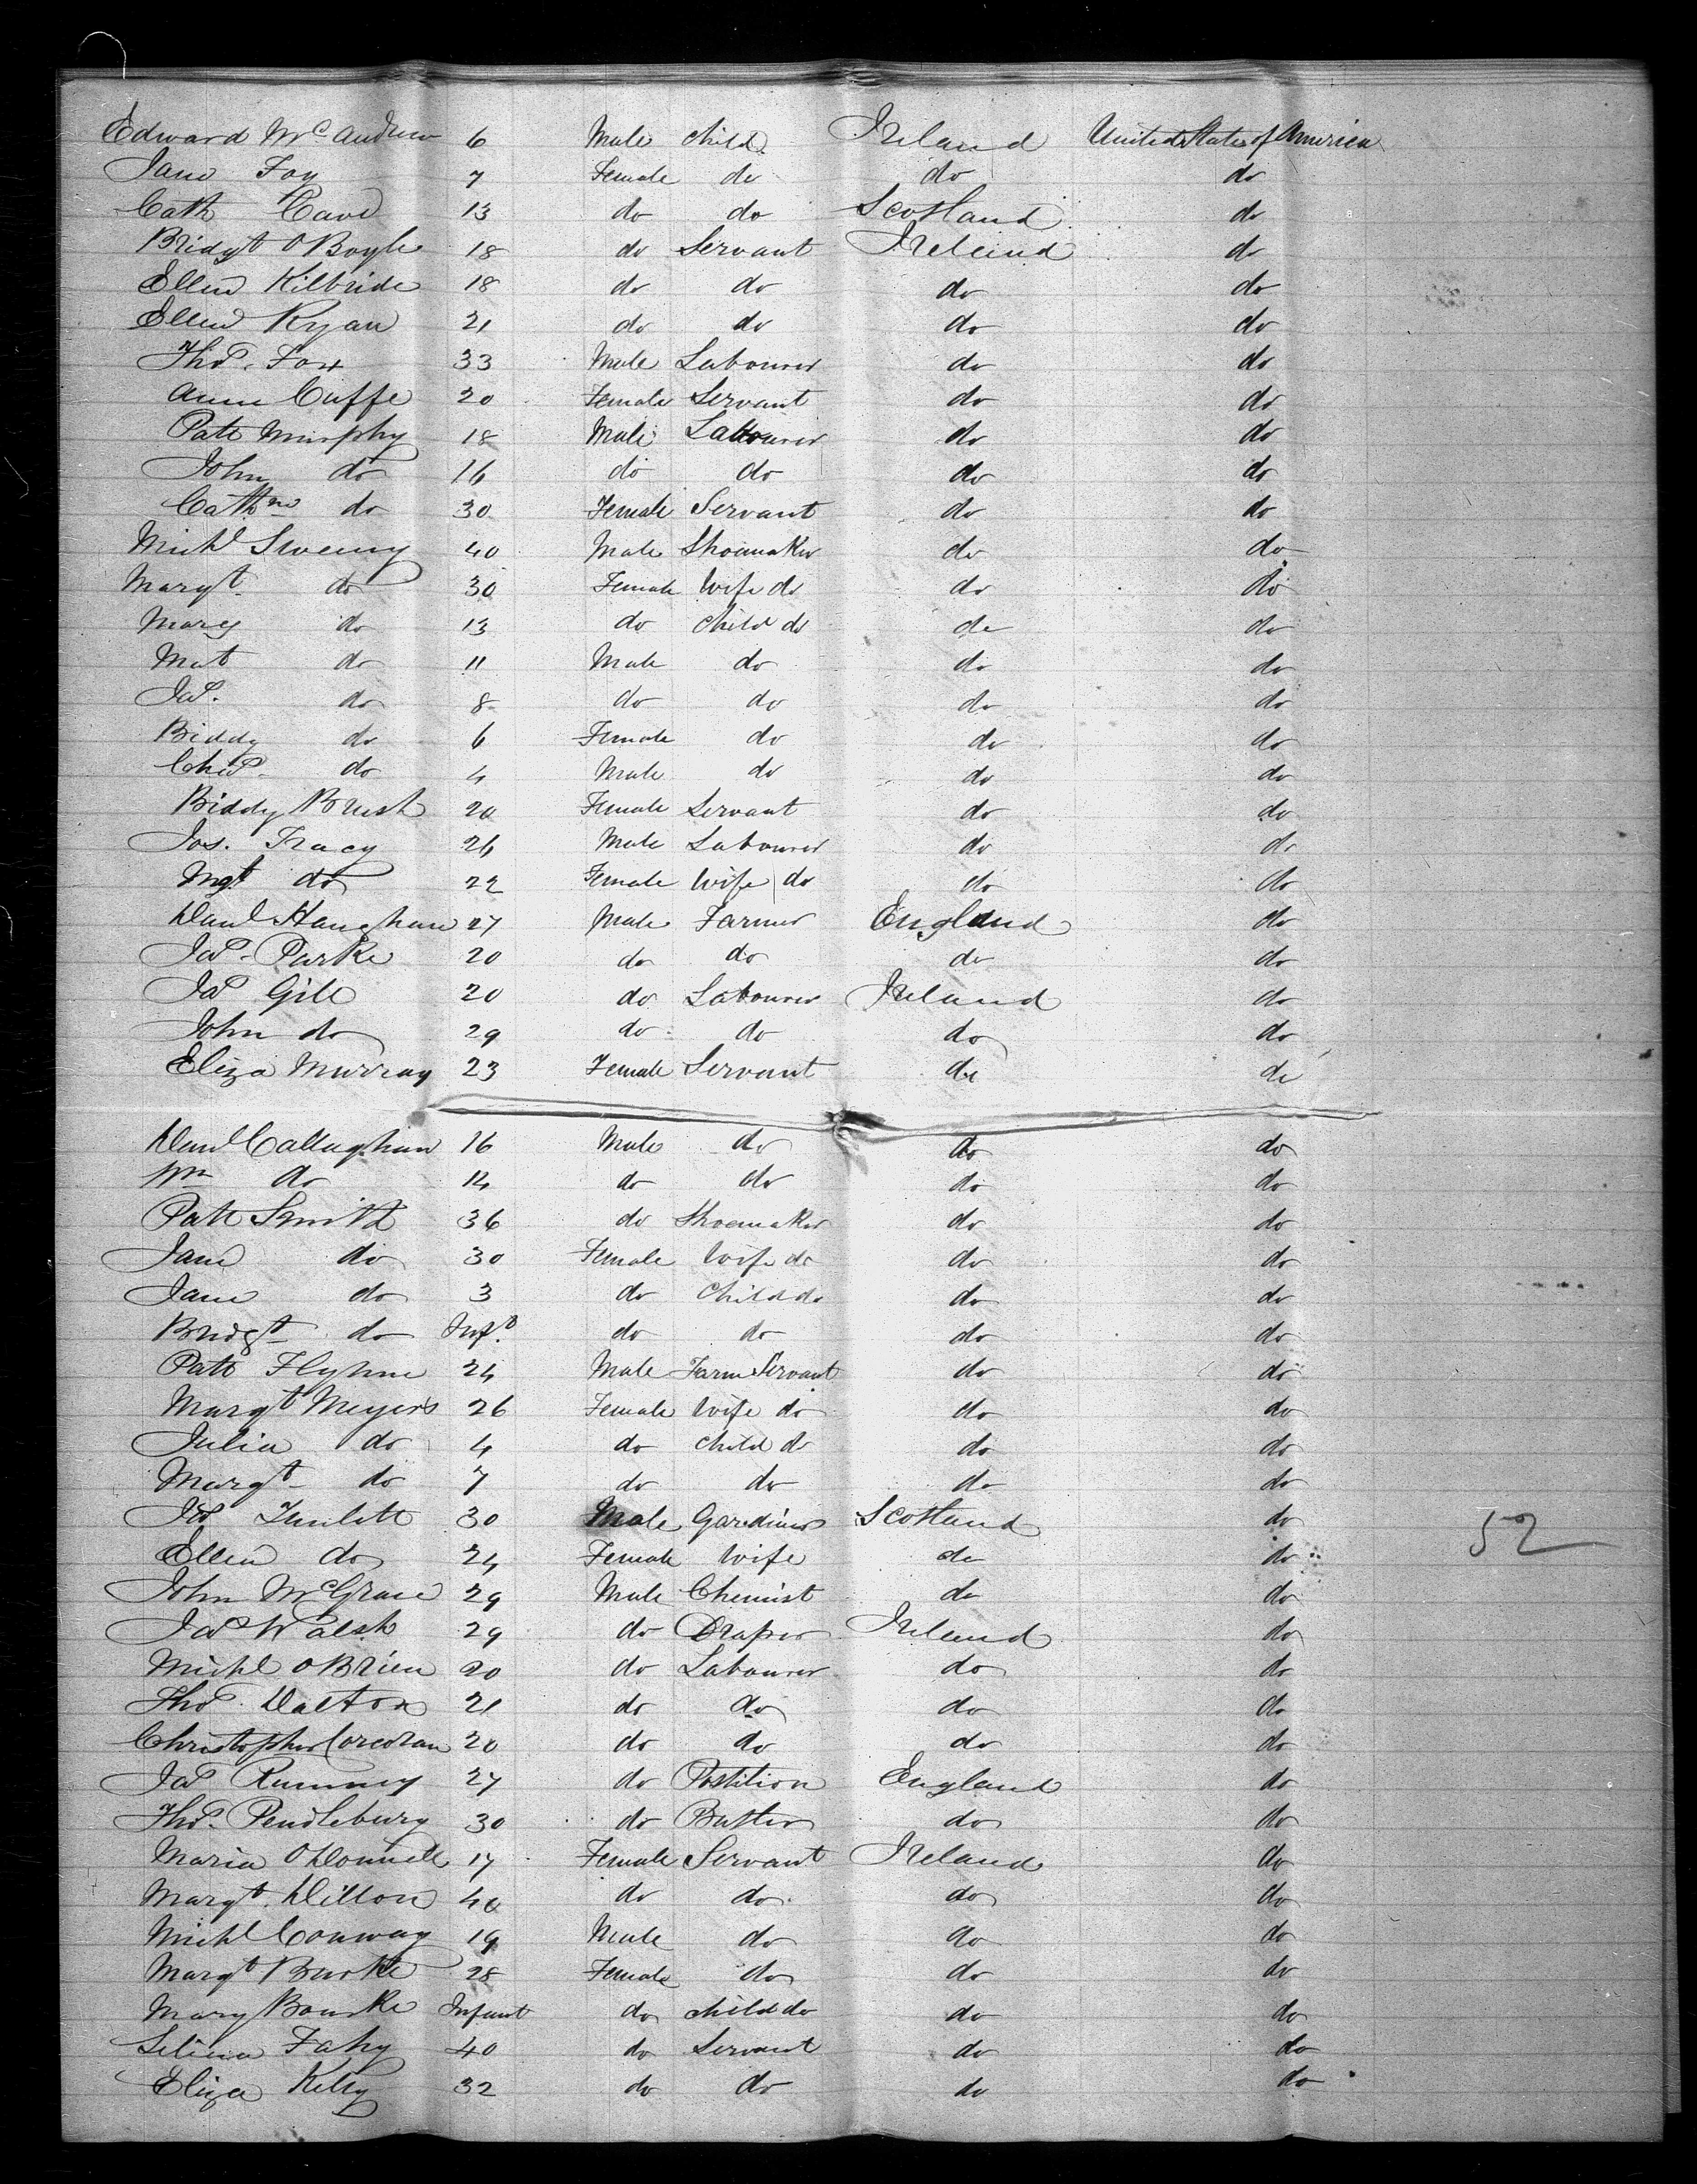 Edward McAndrew 6 Male Child Ireland United States of America
Jane Foy 7 Female do do do
Cath Cave 13 do do Scotland do
Bridgt O Boyle 18 do Servant Ireland do
Ellen Kilbride 18 do do do do
Ellen Ryan 21 do do do do
Thos. Fox 33 Male Labourer do do
Anne Cuffe 20 Female Servant do do
Patt Murphy 18 Male Labourer do do
John do 16 do do do do
Cathne do 30 Female Servant do do
Michl Sweeny 40 Male Shoemaker do do
Margt do 30 Female Wife do do do
Mary do 13 do Child do do do
Mat do 11 Male do do do
Jas. do 8 do do do do
Biddy do 6 Female do do do
Chas. do 4 Male do do do
Biddy Brush 20 Female Servant do do
Jos. Tracy 24 Male Labourer do do
Mgt do 22 Female Wife do do do
Danl Haughan 27 Male Farmer England do
Jas. Parke 20 do do do do
Jas Gill 20 do Labourer Ireland do
John do 29 do do do do
Eliza Murray 23 Female Servant do do
Danl Callaghan 16 Male do do do
Wm do 14 do do do do
Patt Smith 36 do Shoemaker do do
Jane do 30 Female Wife do do do
Jane do 3 do Child do do do
Bridgt do Inft. do do do do
Patt Flynne 24 Male Farm Servant do do
Margt Meyers 26 Female Wife do do do
Julia do 4 do Child do do do
Margt do 7 do do do do
Jas 30 Male Gardiner Scotland do
Ellen do 24 Female Wife do do
John McGrace 29 Male Chemist do do
Jas Walsh 29 do Draper Ireland do
Michl O Brien 20 do Labourer do do
Thos. Dalton 21 do do do do
Christopher Corcoran 20 do do do do
Jas Rummey 27 do Postition England do
Thos. Pendlebury 30 do Butler do do
Maria O Donnell 17 Female Servant Ireland do
Margt. Dillon 40 do do do do
Michl Conway 19 Male do do do
Margt Burke 28 Female do do do
Mary Bourke Infant do child do do do
Selina Fahy 40 do Servant do do
Eliza Kelly 32 do do do do
52